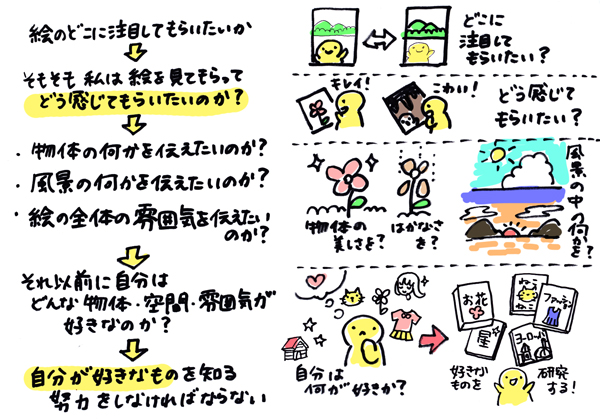 絵のどこに注目してもらいたいか
そもそも私は絵を見てもらって
どう感じてもらいたいのか?
・物体の何かを伝えたいのか?
・風景の何かを伝えたいのか?
・絵の全体の雰囲気を伝えたい
のか?
それ以前に自分は
どんな物体・空間・雰囲気が
好きなのか?
自分が好きなものを知る
努力をしなければならない
どこに
注目して
もらいたい?
キレイ!
こわい!
どう感じて
もらいたい?
物体の
美しさを?
はかなさ
を?
風景の中の何かを?
自分は
何が好きか?
お花
星
ねこ
ファッション
ヨーロッパ
好きな
ものを
研究
する!